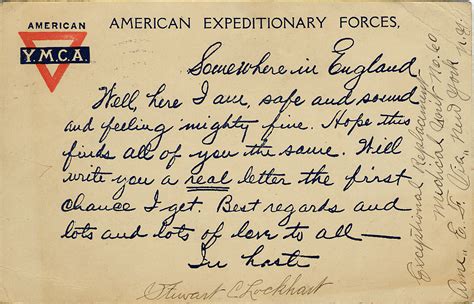 AMERICAN
Y.M.C.A.
AMERICAN EXPEDITIONARY FORCES,
Somewhere in England.
Well, here I am, safe and sound
and feeling mighty fine. Hope this
finds all of you the same. Will
write you a real letter the first
chance I get. Best regards and
lots and lots of love to all—
In haste
Stewart C Lockhart
Exceptional Replacement
Medical Unit No. 60
Ame. E. F. Via, New York N.Y.